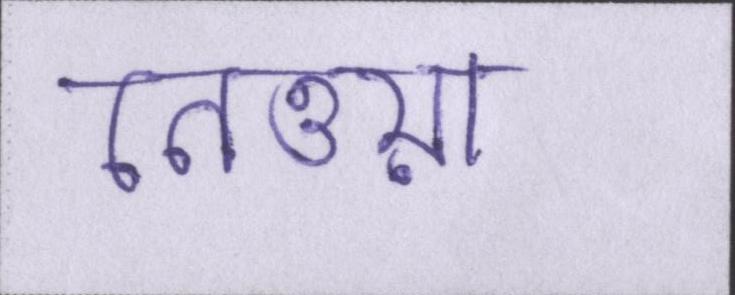 নেওয়া